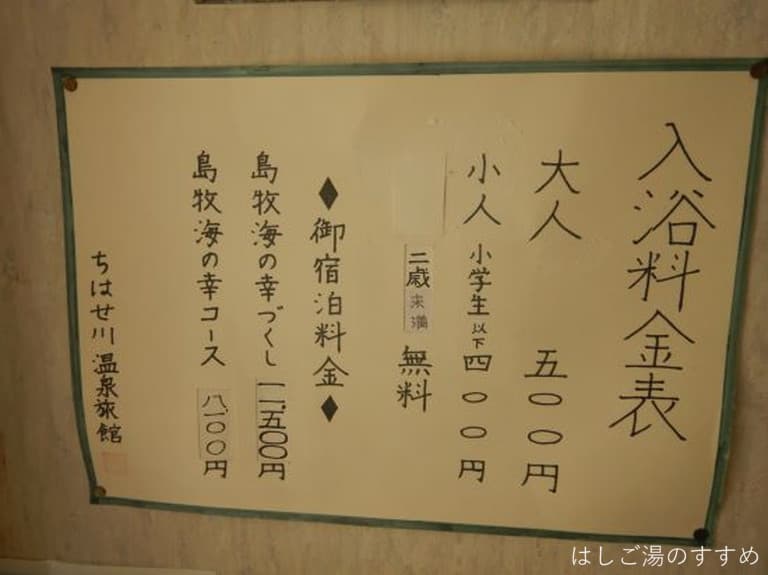 入浴料金表
大人 五〇〇円
小人 小学生以下 四〇〇円
二歳未満 無料
♦御宿泊料金♦
島牧海の幸づくし 一一、五〇〇円
島牧海の幸コース 八、一〇〇円
ちはせ川温泉旅館
はしご湯のすすめ